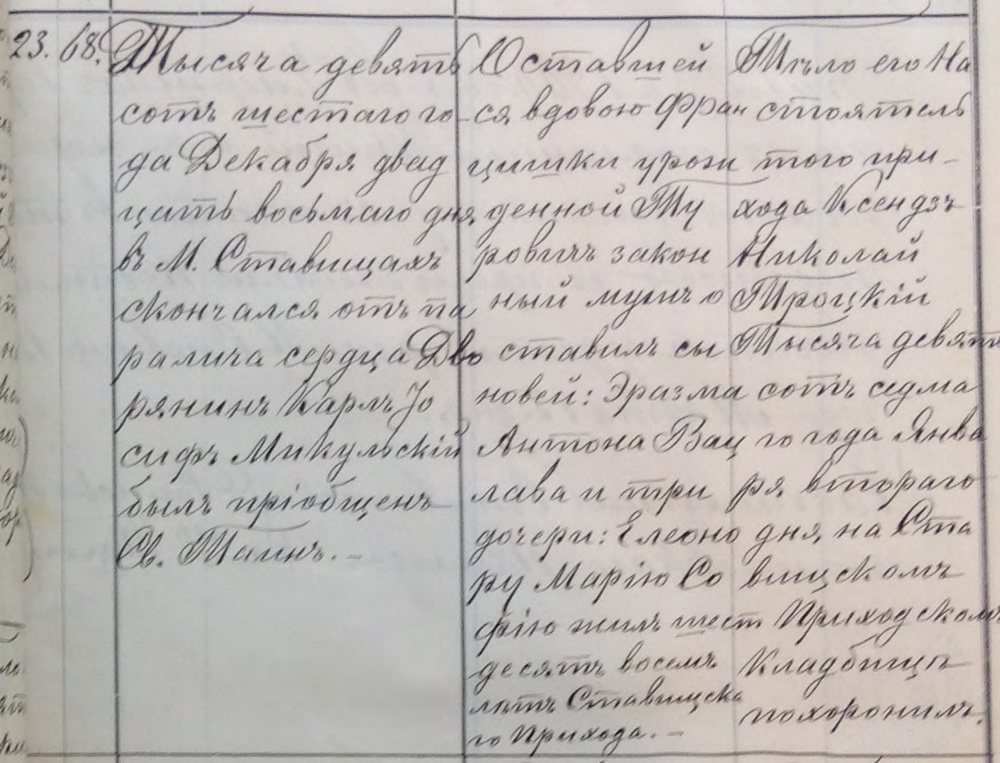 23. 68. Тысяча девять
сотъ шестаго го-
да Декабря двад
цать восьмаго дня
въ М. Ставищахъ
скончался отъ па
ралича сердца Дво
рянинъ Карлъ Іо
сифъ Микульскій
былъ пріобщенъ
Св. Таинъ. –
Оставшей
ся вдовою Фран
цишки урож
денной Ту
ровичъ закон
ный мужъ о
ставилъ сы
новей: Эразма
Антона Вац
лава и три
дочери: Елеоно
ру Марію Со
фію жилъ шест
десятъ восемъ
лѣтъ Ставищска
го Прихода. –
Тѣло его На
стоятель
того при-
хода Ксендзъ
Николай
Троцкій
Тысяча девять
сотъ седма
го года Янва
ря втораго
дня на Ста
вищскомъ
Приходскомъ
Кладбищѣ
похоронилъ.